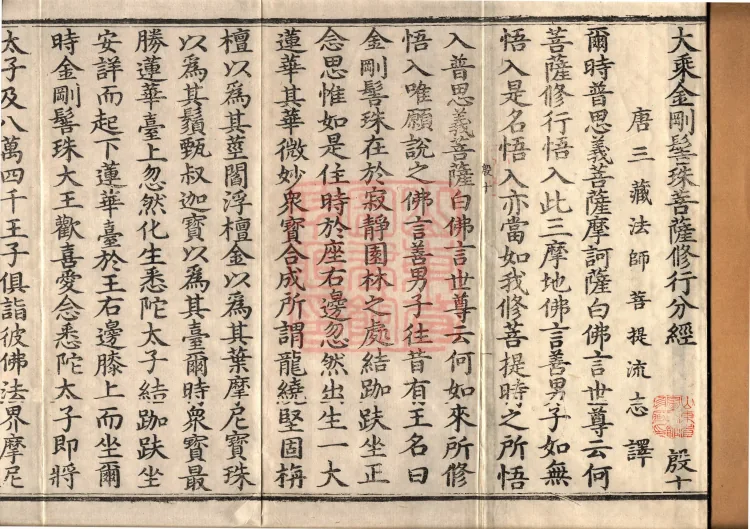 大乘金剛髻珠菩薩修行分經 殷十
唐三藏法師菩提流志譯
爾時普思義菩薩摩訶薩白佛言世尊云何
菩薩修行悟入此三摩地佛言善男子如無
悟入是名悟入亦當如我修菩提時之所悟
殷十
入普思義菩薩白佛言世尊云何如來所修
悟入唯願說之佛言善男子往昔有王名曰
金剛髻珠在於寂靜園林之處結跏趺坐正
念思惟如是住時於座右邊忽然出生一大
蓮華其華微妙衆寶合成所謂龍繞堅固栴
檀以爲其莖閻浮檀金以爲其葉摩尼寶珠
以爲其鬚甄叔迦寶以爲其臺爾時衆寶最
勝蓮華臺上忽然化生悉陀太子結跏趺坐
安詳而起下蓮華臺於王右邊膝上而坐爾
時金剛髻珠大王歡喜愛念悉陀太子即將
太子及八萬四千王子俱詣彼佛法界摩尼